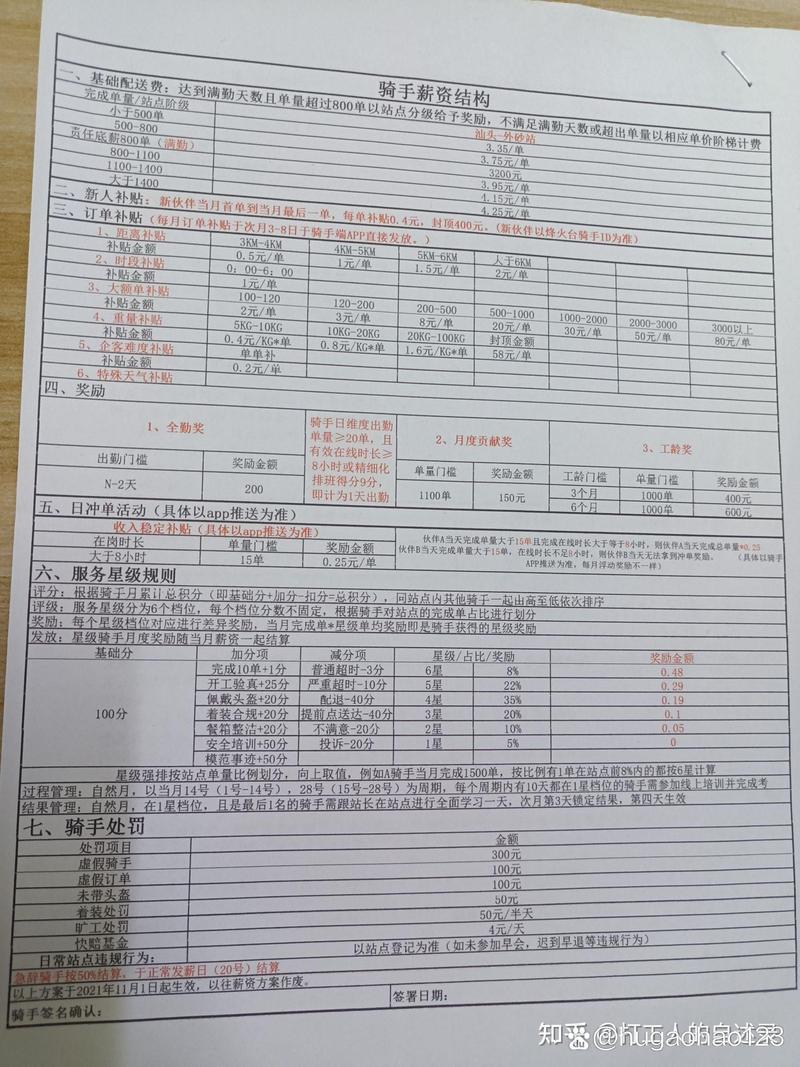 骑手薪资结构
一、基础配送费：达到满勤天数且单量超过800单以站点分级给予奖励，不满足满勤天数或超出单量以相应单价阶梯计费
完成单量/站点阶级 汕头-外砂站
小于500单 3.35/单
500-800 3.75元/单
责任底薪800单（满勤） 3200元
800-1100 3.95元/单
1100-1400 4.15元/单
大于1400 4.25元/单
二、新人补贴：新伙伴当月首单到当月最后一单，每单补贴0.4元，封顶400元。(新伙伴以烽火台骑手ID为准）
三、订单补贴（每月订单补贴于次月3-8日于骑手端APP直接发放。）
1、距离补贴 3KM-4KM 4KM-5KM 5KM-6KM 大于6KM
补贴金额 0.5元/单 1元/单 1.5元/单 2元/单
2、时段补贴 0：00-6：00
补贴金额 1元/单
3、大额单补贴 100-120 120-200 200-500 500-1000 1000-2000 2000-3000 3000以上
补贴金额 2元/单 3元/单 8元/单 20元/单 30元/单 50元/单 80元/单
4、重量补贴 5KG-10KG 10KG-20KG 20KG-100KG 封顶金额
补贴金额 0.4元/KG*单 0.8元/KG*单 1.6元/KG*单 58元/单
5、企客难度补贴 单单补
补贴金额 0.2元/单
6、特殊天气补贴
四、奖励
1、全勤奖
出勤门槛 奖励金额
N-2天 200
骑手日维度出勤
单量≥20单，且
有效在线时长≥
8小时或精细化
排班得分9分，
即计为1天出勤
2、月度贡献奖
单量门槛 奖励金额
1100单 150元
3、工龄奖
工龄门槛 单量门槛 奖励金额
3个月 1000单 400元
6个月 1000单 600元
五、日冲单活动（具体以app推送为准）
收入稳定补贴（具体以app推送为准）
在岗时长 单量门槛 奖励金额
大于8小时 15单 0.25元/单
伙伴A当天完成单量大于15单且完成在线时长大于等于8小时，则伙伴A当天完成总单量*0.25
伙伴B当天完成单量大于15单，在线时长不足8小时，则伙伴B当天无法拿到冲单奖励。 （具体以骑手
APP推送为准，每月浮动奖励不一样）
六、服务星级规则
评分：根据骑手月累计总积分（即基础分+加分-扣分=总积分），同站点内其他骑手一起由高至低依次排序
评级：服务星级分为6个档位，每个档位分数不固定，根据骑手对站点的完成单占比进行划分
奖励：每个星级档位对应进行差异奖励，当月完成单*星级单均奖励即是骑手获得的星级奖励
发放：星级骑手月度奖励随当月薪资一起结算
基础分 加分项 减分项 星级/占比/奖励 奖励金额
100分
完成10单+1分 普通超时-3分 6星 8% 0.48
开工验真+25分 严重超时-10分 5星 22% 0.29
佩戴头盔+20分 配退-40分 4星 35% 0.19
着装合规+20分 提前点送达-40分 3星 20% 0.1
餐箱整洁+20分 不满意-20分 2星 10% 0.05
安全培训+50分 投诉-20分 1星 5% 0
模范事迹+50分
星级强排按站点单量比例划分，向上取值，例如A骑手当月完成1500单，按比例有1单在站点前8%内的都按6星计算
过程管理：自然月，以当月14号（1号-14号），28号（15号-28号）为周期，每个周期内有10天都在1星档位的骑手需参加线上培训并完成考
结果管理：自然月，在1星档位，且是最后1名的骑手需跟站长在站点进行全面学习一天，次月第3天锁定结果，第四天生效
七、骑手处罚
处罚项目 金额
虚假骑手 300元
虚假订单 100元
未带头盔 100元
着装处罚 50元
旷工处罚 50元/半天
快赔基金 4元/天
日常站点违规行为： 以站点登记为准（如未参加早会，迟到早退等违规行为）
急辞骑手按50%结算，于正常发薪日（20号）结算
以上方案于2021年11月1日起生效，以往薪资方案作废。
骑手签名确认： 签署日期：
知乎 @打工人的自述录
@hugaohao123